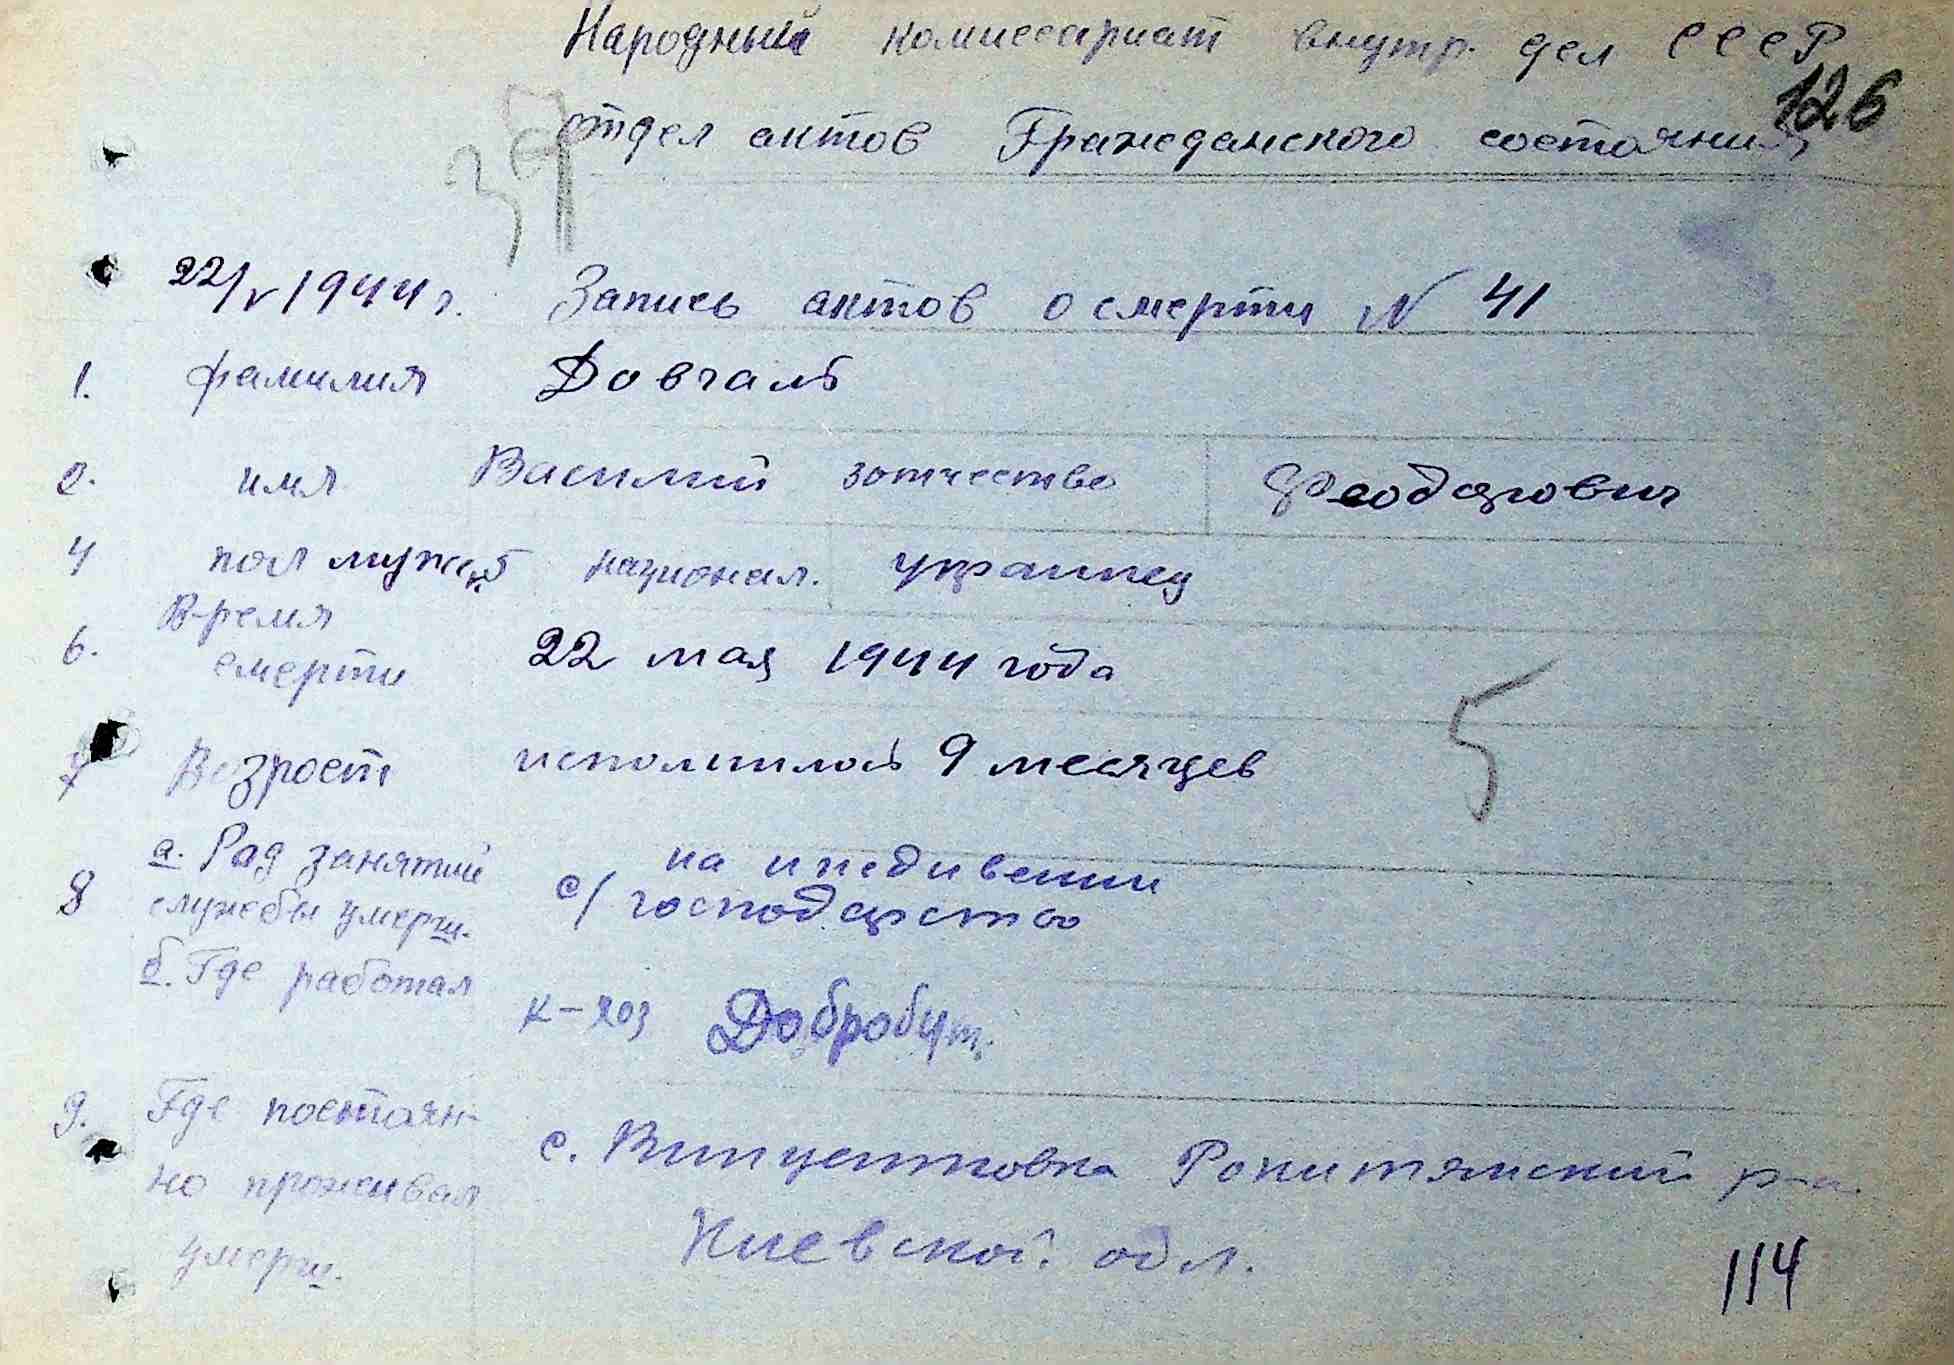 Народный комиссариат внутр. дел СССР
126
отдел актов Гражданского состояния
37
22/V 1944 г. Запись актов о смерти N 41
1. фамилия Довгаль
2. имя Василий 3 отчество Феодорович
4 пол мужск. национал. украинец
6. Время смерти 22 мая 1944 года
7 Возрост исполнилось 9 месяцев
5
8 а. Рад занятий на иледивении
службы умерш. с/господарство
б. Где работал
к-хоз Добробут.
9. Где постоян-
но проживал с. Винцентовка Рокитянский р-н.
умерш. Киевской обл.
114